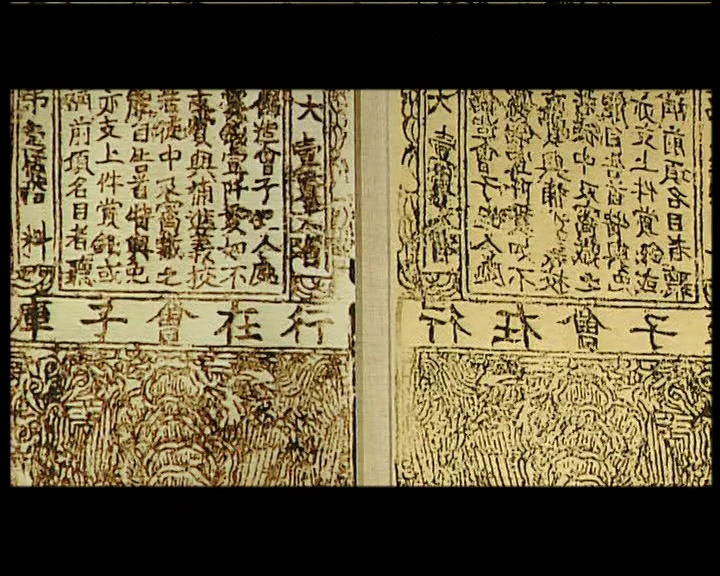 大壹貫文省
偽造會子犯人處
賞錢壹阡貫如不
支賞與補進義校
若徒中及窩藏之
能自告首特與免
亦支上件賞錢或
補前項名目者聽
料
行在會子庫
大壹貫文省
造會子犯人處
錢壹阡貫如不
賞與補進義校
徒中及窩藏之
能自告首特與免
亦支上件賞錢或
補前項名目者聽
行在會子